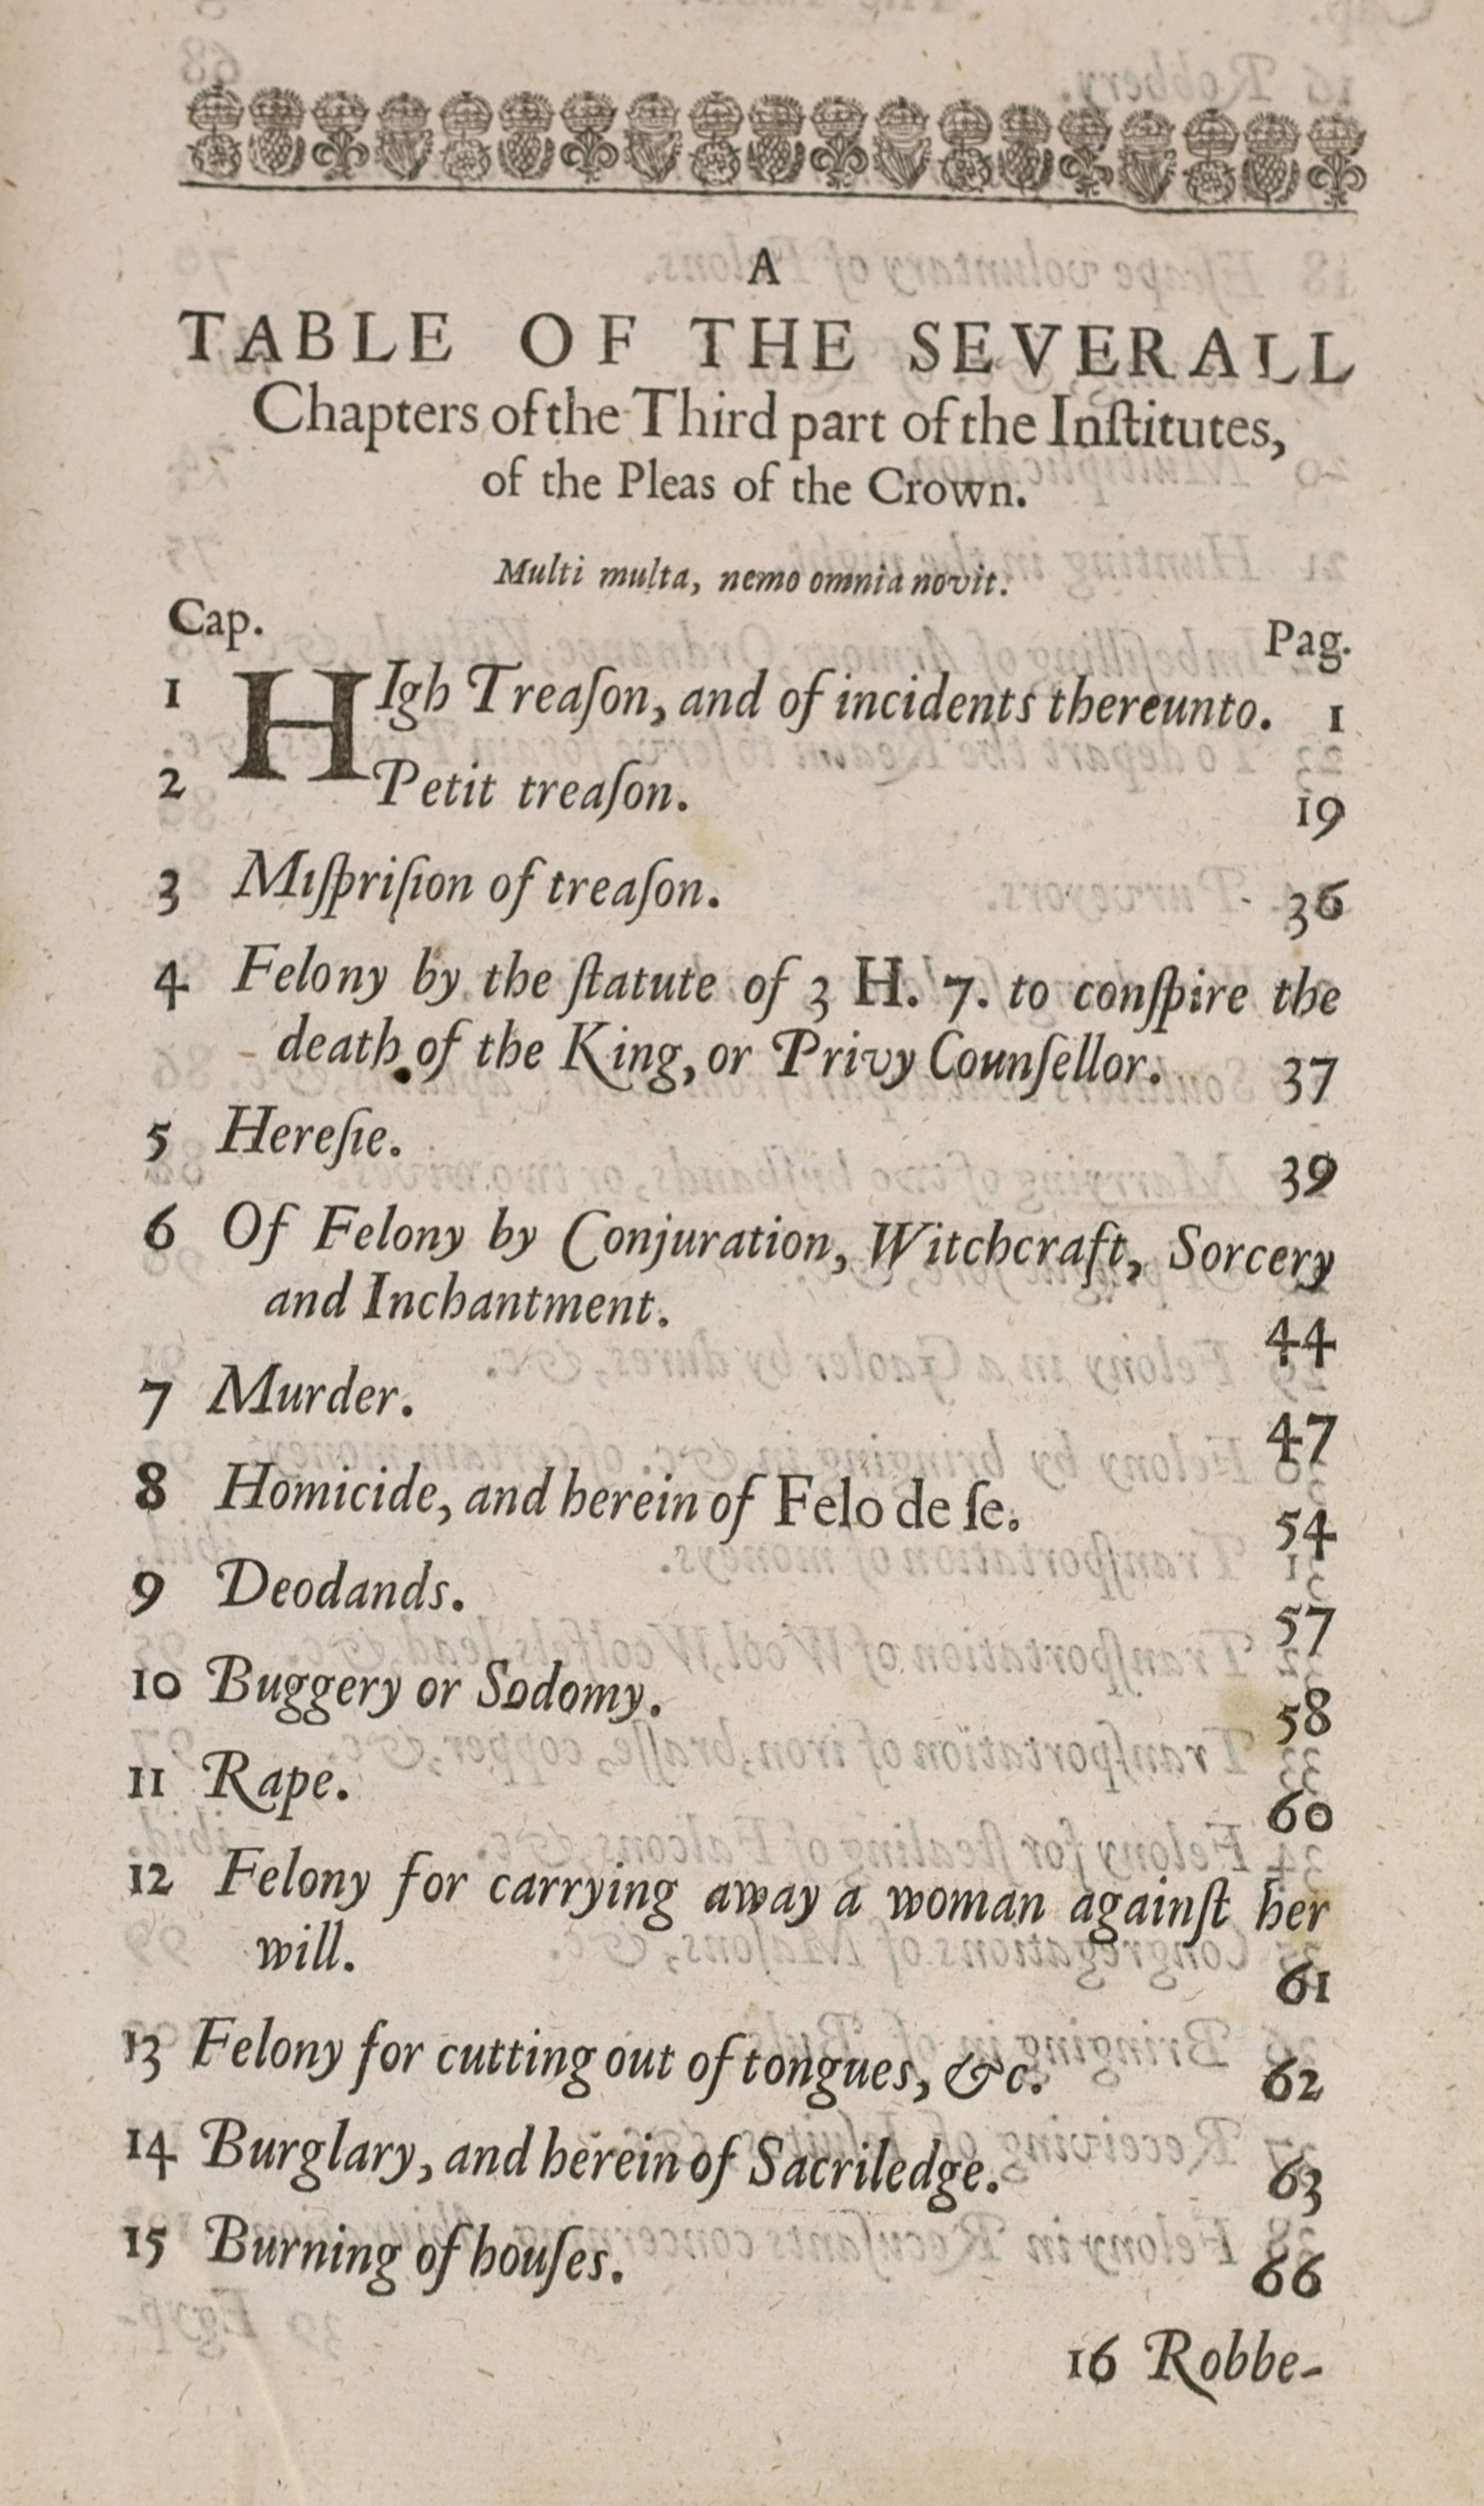 A
TABLE OF THE SEVERALL
Chapters of the Third part of the Inſtitutes,
of the Pleas of the Crown.
Multi multa, nemo omnia novit.
Cap. Pag.
1 HIgh Treaſon, and of incidents thereunto. 1
2 Petit treaſon. 19
3 Miſpriſion of treaſon. 36
4 Felony by the ſtatute of 3 H. 7. to conſpire the
death of the King, or Privy Counſellor. 37
5 Hereſie. 39
6 Of Felony by Conjuration, Witchcraft, Sorcery
and Inchantment. 44
7 Murder. 47
8 Homicide, and herein of Felo de ſe. 54
9 Deodands. 57
10 Buggery or Sodomy. 58
11 Rape. 60
12 Felony for carrying away a woman againſt her
will. 61
13 Felony for cutting out of tongues, &c. 62
14 Burglary, and herein of Sacriledge. 63
15 Burning of houſes. 66
16 Robbe-